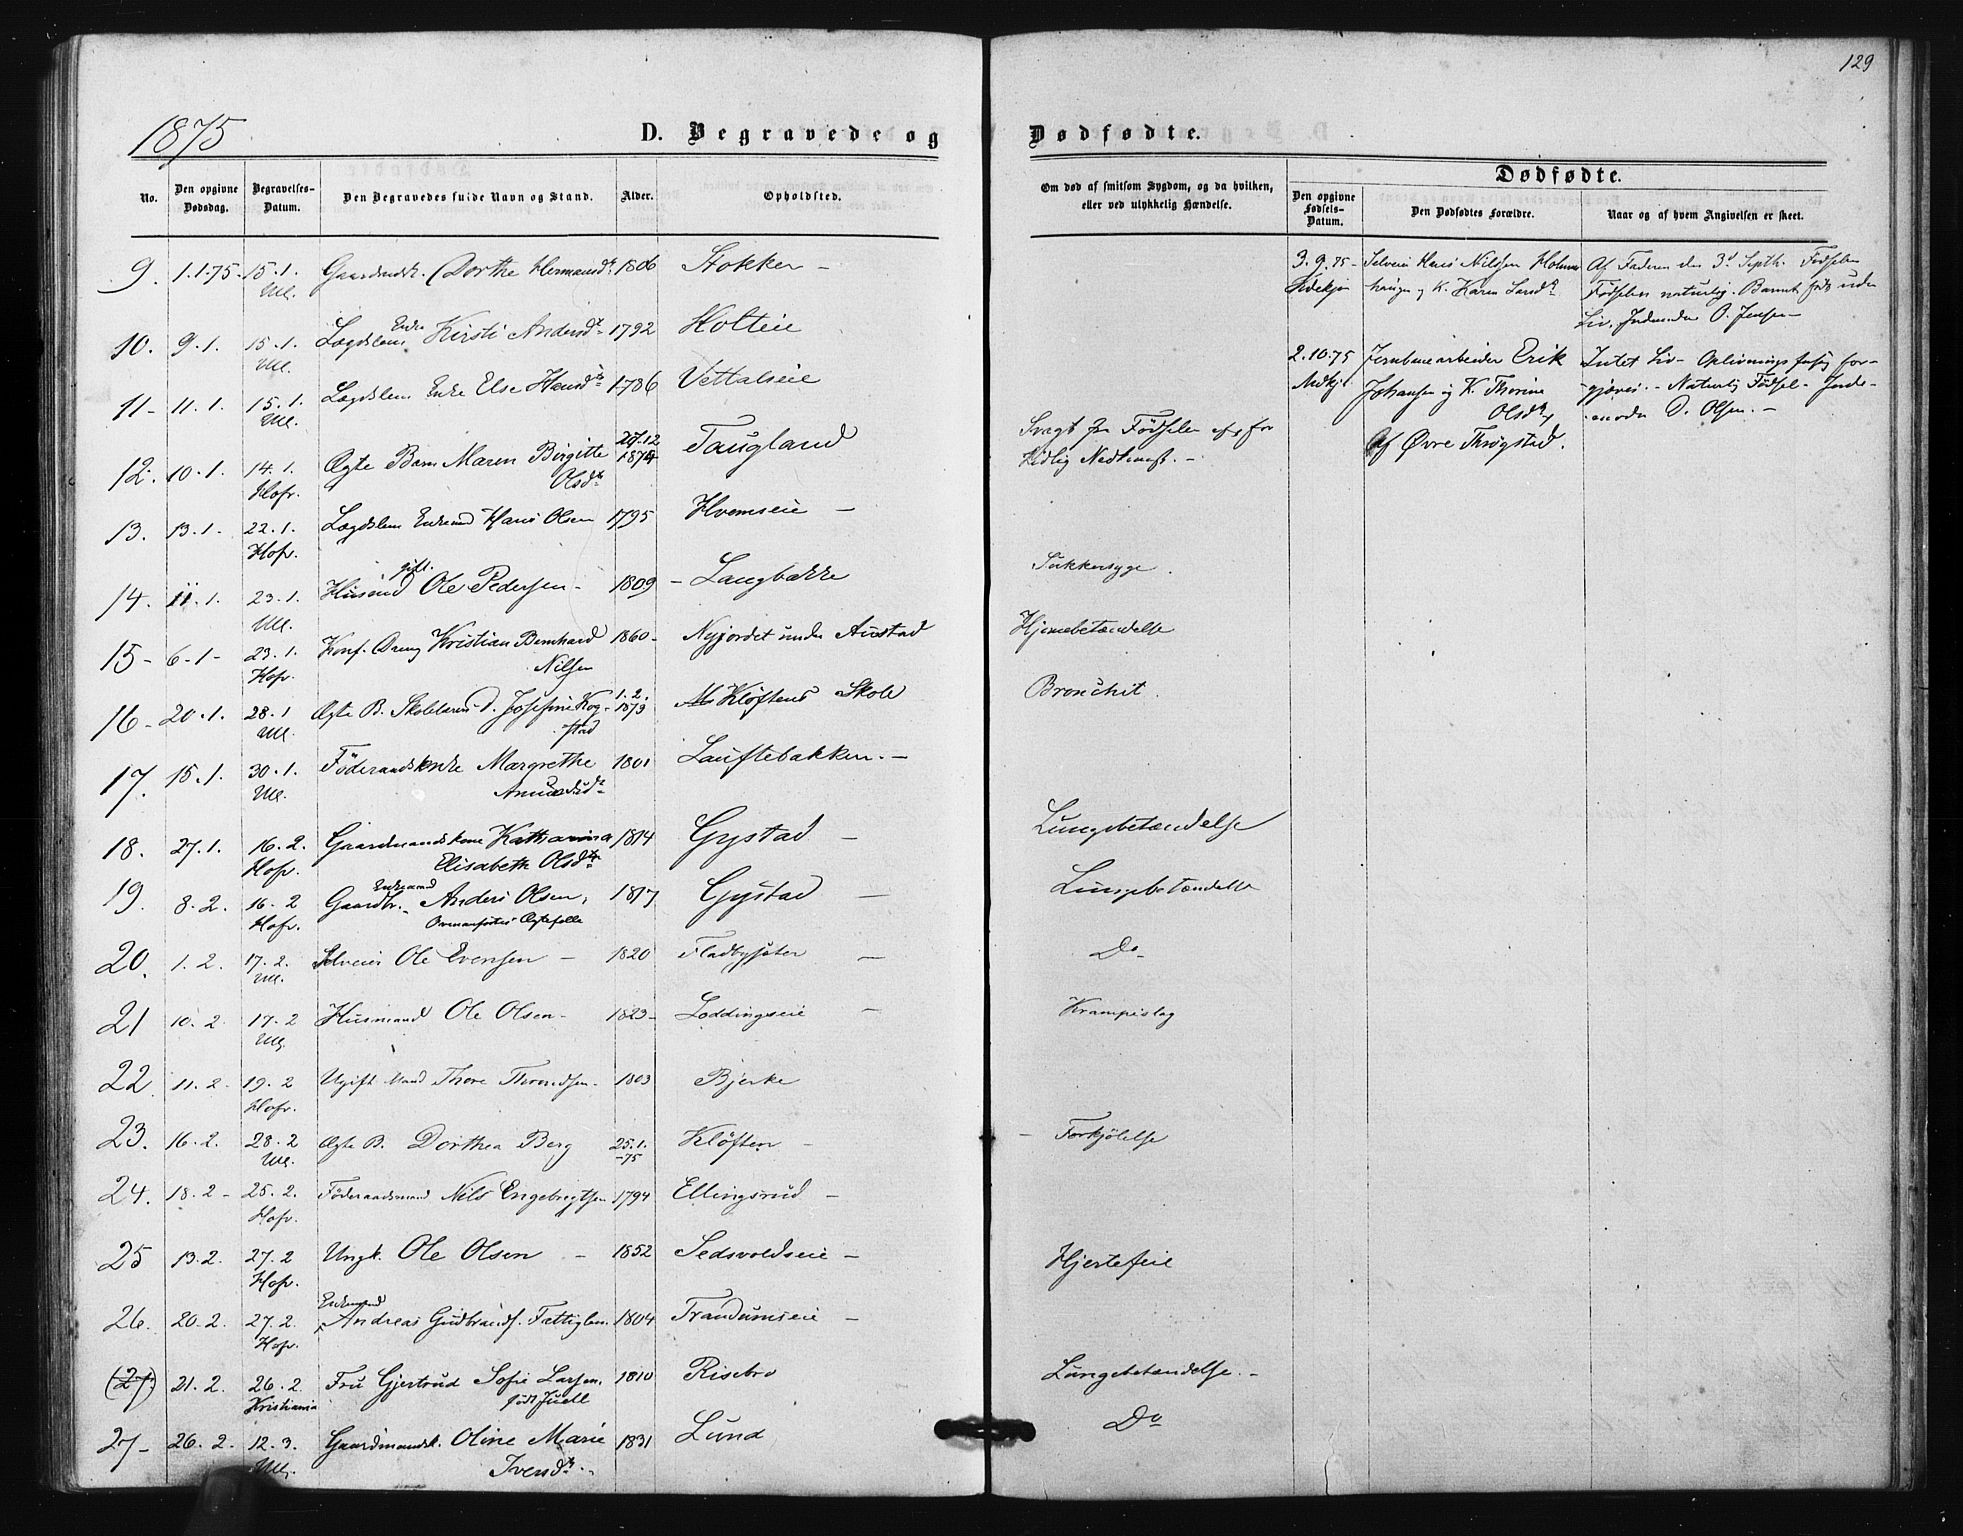 129
1875
D. Begravede og Dødfødte.
Dødfødte.
No.
Den opgivne Dødsdag.
Begravelses-Datum.
Den Begravedes fulde Navn og Stand.
Alder.
Opholdsted.
Om død af smitsom Sygdom, og da hvilken, eller ved ulykkelig Hændelse.
Den opgivne Fødsels-Datum.
Den Dødfødtes Forældre.
Naar og af hvem Angivelsen er skeet.
9. 1.1.75. 15.1. Gaardmdsk. Dorthe Hermansd. 1806 Stokker –
Ul.
10. 9.1. 15.1. Lægdslem Enke Kirsti Andersd. 1792 Holteie
Ul.
11 – 11.1. 15.1. Lægdslem Enke Else Hansd. 1786 Vettalseie
Ul.
12. 10.1. 14.1. Ægte Barn Maren Birgitte 27.12 1874 Taugland Svagt fra Fødselen
Hofr. Olsd. Tidlig Nedkomst. –
13. 13.1. 22.1. Lægdslem Enkemd Hans Olsen 1795 Hvemseie –
Hofr.
14. 11.1. 23.1. Husmd gift. Ole Pedersen – 1809 – Langbakke Sukkersyge.
Ul.
15 – 6.1 – 23.1. Konf. Dreng Kristian Bernhard 1860 – Nyjordet under Austad Hjernebetændelse
Hofr. Nilsen
16 – 20.1. 28.1 Ægte B. Skolelærers D. Josefine Kog- 1.2. 1873 Kløftens Skole Bronchit.
Ul. stad
17. 15.1. 30.1. Föderaadsenke Margrethe 1801 Lauftebakken. –
Ul. Amundsd.
18. 27.1. 16.2. Gaardmandskone Katharina 1814 Gystad – Lungebetændelse
Hofr. Elisabeth Olsd.
19. 8.2. 16.2 Gaardbr. Enkemand Anders Olsen, 1817 Gystad – Lungebetændelse
Hofr. Ovenanførtes Ægtefælle
20. 1.2. 17.2. Selveier Ole Evensen – 1820 Fladbysæter – Do
Ul.
21 10.2. 17.2 Husmand Ole Olsen – 1823 – Loddingseie – Krampeslag
Ul.
22 11.2. 19.2 Ugift Mand Thore Throndsen. 1803 Bjerke
Hofr.
23. 16.2. 28.2 Ægte B. Dorthea Berg 25.1. -75 Kløften – Forkjölelse
Ul.
24. 18.2 – 25.2. Föderaadsmand Nils Engebregtsen 1794 Ellingsrud –
Hofr.
25 13.2. 27.2 Ungk. Ole Olsen – 1852 Sedsvoldseie – Hjertefeil
Hofr.
26. 20.2. 27.2. Enkemand Andreas Gudbrands. Fattiglem. 1804 Trandumseie –
Hofr.
(27.) 21.2. 26.2. Fru Gjertrud Sofie Larsen, 1810 Risebro Lungebetændelse. –
Kristiania født Juell
27 – 26.2. 12.3. Gaardmandsk. Oline Marie 1831 Lund Do
Ul. Ivensd.
3.9.75 – Selveier Hans Nilssen Holmen- Af Faderen den 3d Septb. Fødselen
haugen og K. Karen Larsd. Fødselen naturlig. Barnet født uden
Liv. Jordmoder O. Jensen –
2.10.75 Jernbanearbeider Erik Intet Liv – Oplivningsforsøg for-
Johansen og K. Thorine gjæves. – Naturlig Fødsel. Jorde-
Olsd. moder O. Olsen. –
Af Øvre Throgstad.